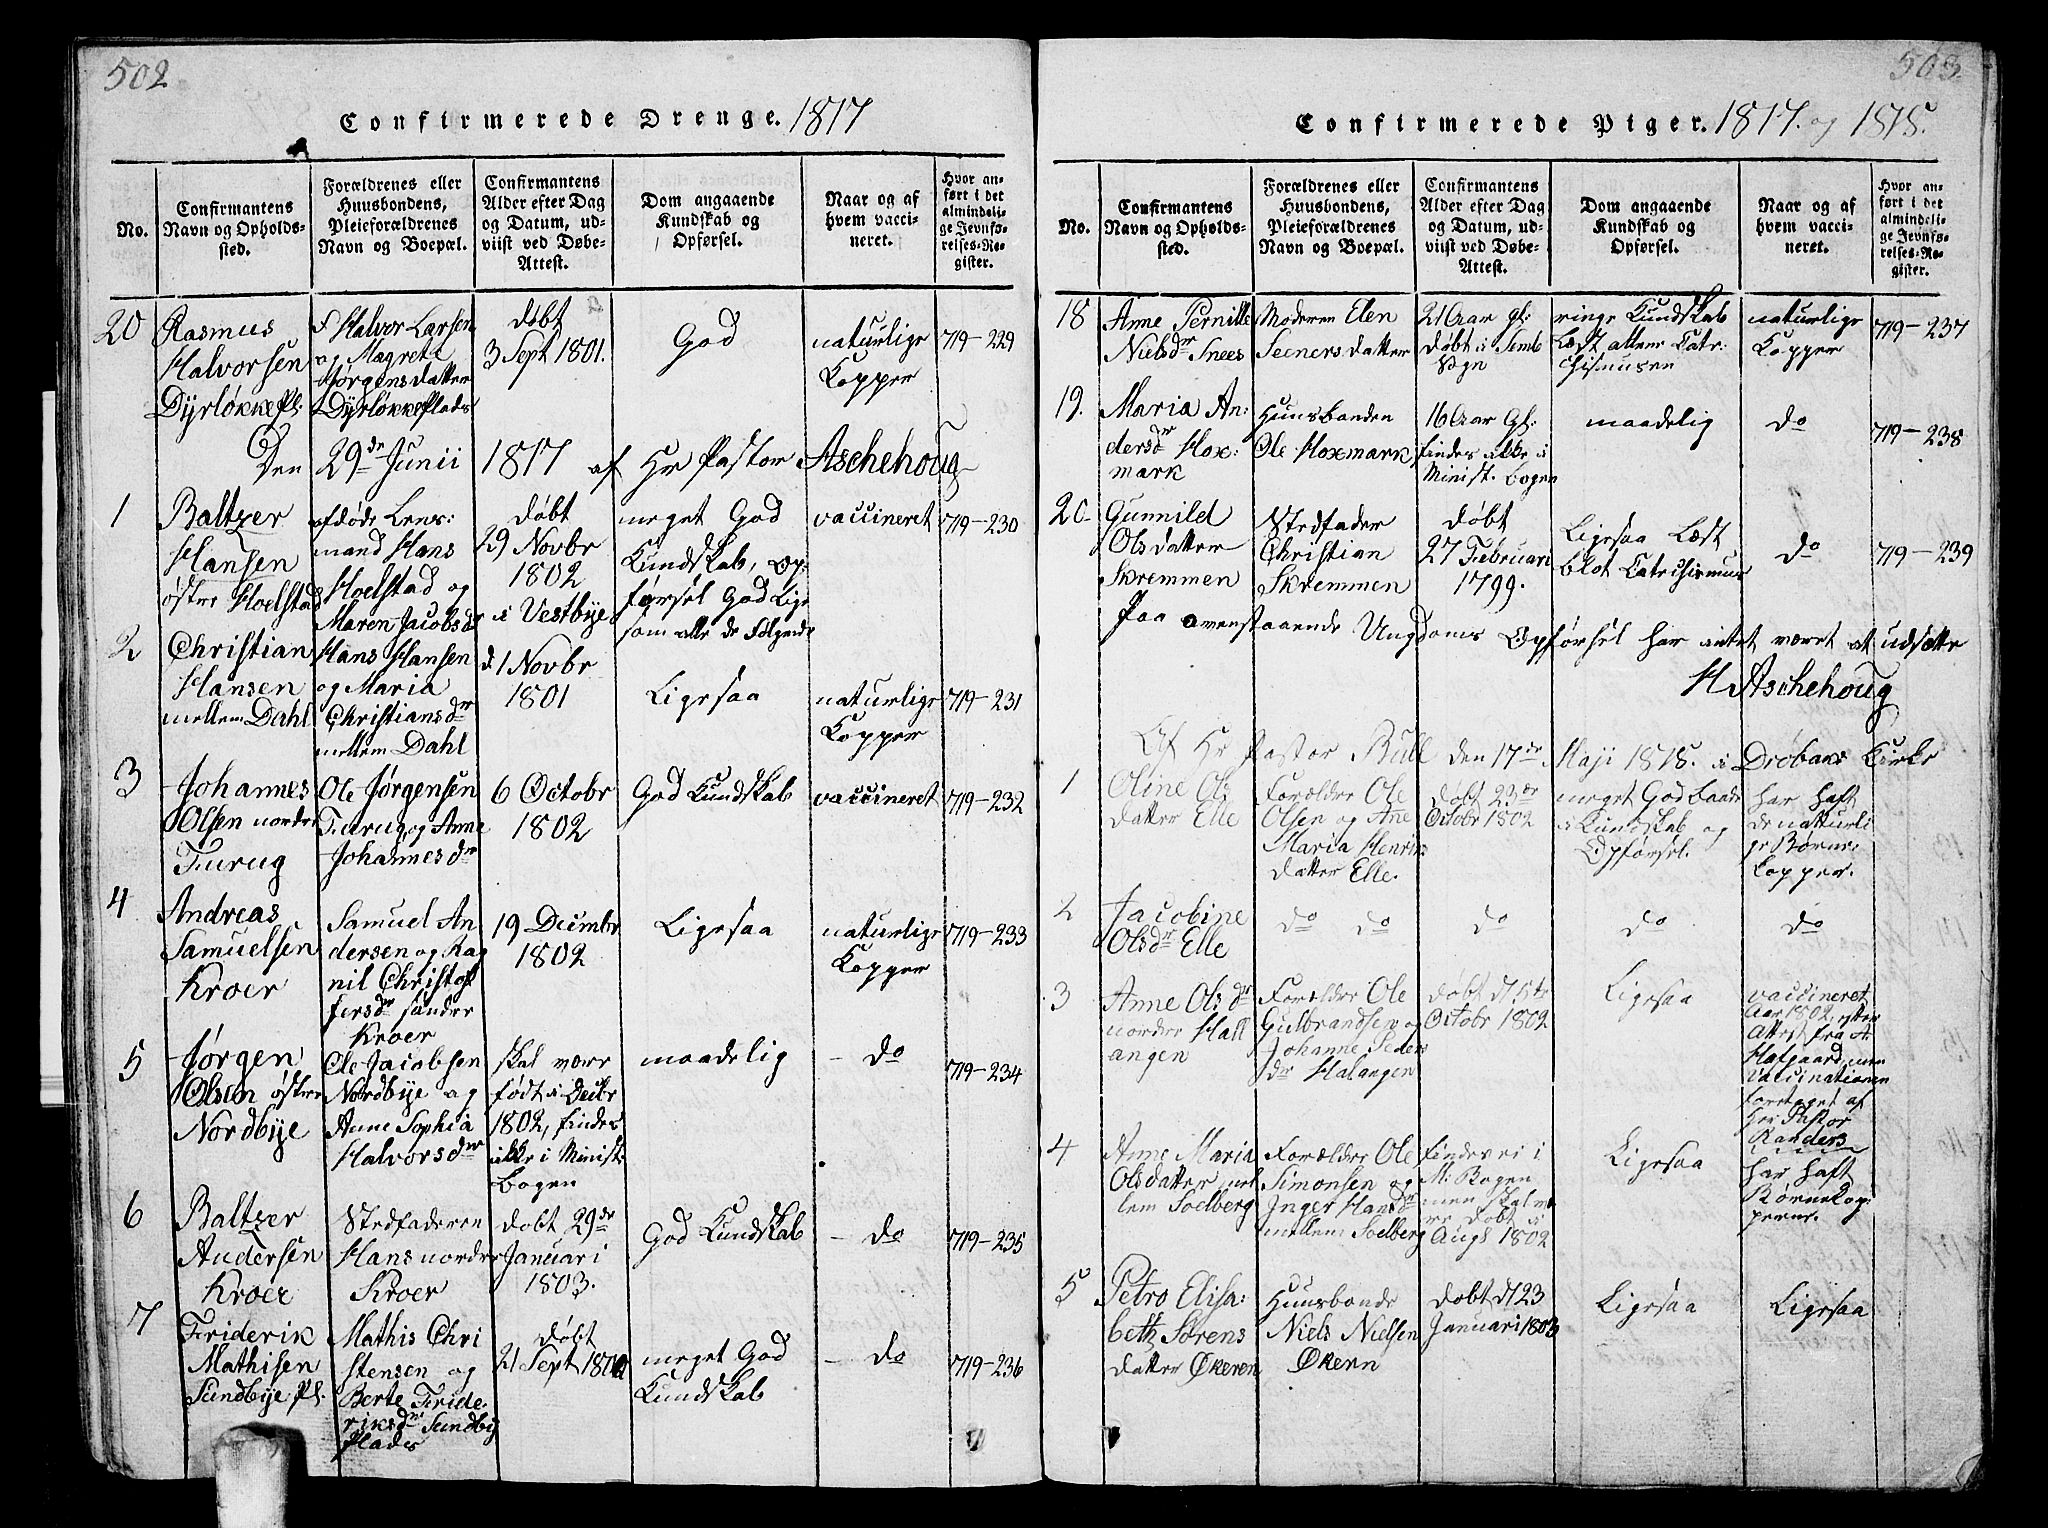 502
Confirmerede Drenge. 1817
No.
Confirmantens
Navn og Opholds-
sted.
Forældrenes eller
Huusbondens,
Pleieforældrenes
Navn og Boepæl.
Confirmantens
Alder efter Dag
og Datum, ud-
viist ved Døbe-
Attest.
Dom angaaende
Kundskab og
Opførsel.
Naar og af
hvem vacci-
neret.
Hvor an-
ført i det
almindeli-
ge Jevnfø-
relses-Re-
gister.
20
Rasmus
Halvorsen
Dyrløkke Pl:
F Halvor Larsen
og Magrete
Jørgensdatter
Dyrløkke Plads
døbt
3 Sept 1801.
God
naturlige
Kopper
719-229
Den 29de Junii 1817 af Hr Pastor Aschehoug
1
Baltzer
Hansen
østre Hoelstad
afdøde Lens:
mand Hans
Hoelstad og
Maren Jacobsdr
døbt
29 Novbr
1802
i Vestbye
meget God
Kundskab, Op:
førsel God lige
som alle de Følgende
vaccineret
719-230
2
Christian
Hansen
mellem Dahl
Hans Hansen
og Maria
Christiansdr
mellem Dahl
d 1 Novbr
1801
Ligesaa
naturlige
Kopper
719-231
3
Johannes
Olsen nordre
Furug
Ole Jørgensen
Furug og Anne
Johannesdr
6 Octobr
1802
God Kundskab
vaccineret
719-232
4
Andreas
Samuelsen
Kroer
Samuel An
dersen og Rag
nil Christof
fersdr søndre
Kroer
19 Decimbr
1802
Ligesaa
naturlige
Kopper
719-233
5
Jørgen
Olsen østre
Nordbye
Ole Jacobsen
Nordbye og
Anne Sophia
Halvorsdr
skal være
født i Decbr
1802, findes
ikke i Minist:
Bogen
maadelig
- do
719-234
6
Baltzer
Andersen
Kroer
Stedfaderen
Hans nordre
Kroer
døbt 29de
Januari
1803.
God Kundskab
- do
719-235
7
Friderik
Mathisen
Sundbye Pl.
Mathis Chri
stensen og
Berte Fride
riksdr Sundby
Plads
døbt
21 Sept
meget God
Kundskab
- do
719-236
503
Confirmerede Piger. 1817. og 1818.
No.
Confirmantens
Navn og Opholds-
sted.
Forældrenes eller
Huusbondens,
Pleieforældrenes
Navn og Boepæl.
Confirmantens
Alder efter Dag
og Datum, ud-
viist ved Døbe-
Attest.
Dom angaaende
Kundskab og
Opførsel.
Naar og af
hvem vacci-
neret.
Hvor an-
ført i det
almindeli-
ge Jevnfø-
relses-Re-
gister.
18
Anne Pernille
Nielsdr Snees
Moderen Elen
Seenersdatter
21 Aar gl:
døbt i
Sogn
ringe Kundskab
Læst allene Cate:
chismusen
naturlige
Kopper
719-237
19.
Maria An:
dersdr Hox:
mark
Huusbonden
Ole Hoxmark
16 Aar Gl:
findes ikke i
Minist. bogen
maadelig
do
719-238
20
Gunnild
Olsdatter
Skremmen
Stedfader
Christian
Skremmen
døbt
27 Februari
1799.
Ligesaa Læst
blot Catechismus
do
719-239
Paa ovenstaaende Ungdoms Opførsel har intet været at udsætte
H Aschehoug
Af Hr Pastor Bull den 17de Maji 1818. i Drøbaks Kirke
1
Oline Ols
datter Elle
Forældre Ole
Olsen og Ane
Maria Henrix
datter Elle.
døbt 23de
Octobr 1802
meget God baade
i Kundskab og
Opførsel.
har haft
de naturli
ge Børne:
kopper.
2
Jacobine
Olsdr Elle
do do
do
do
do
3
Anne Olsdr
nordre Hall
angen
Forældre Ole
Gulbrandsen og
Johanne Peders
dr Halangen
døbt d 15te
Octobr 1802
Ligesaa
vaccineret
Aar 1802, efter
Attest fra A
Hafgaard, men
Vaccinationen
foretaget af
Hr Pastor
Randers
4
Anne Maria
Olsdatter mel
lem Soelberg
Forældre Ole
Simonsen og
Inger Hansdr
mellem Soelberg
findes ei i
M: Bogen
men skal væ
re døbt i
Augs 1802
Ligesaa
har haft
Børnekop
perne.
5
Petro Elisa:
beth Sørens
datter Økeren
Huusbonde
Niels Nielsen
Økern
døbt d 23
Januari 1803
Ligesaa
Ligesaa